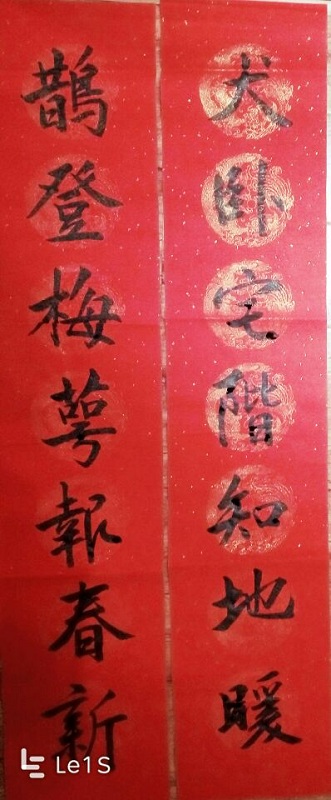 犬卧宅階知地暖
鵲登梅萼報春新
Le1S